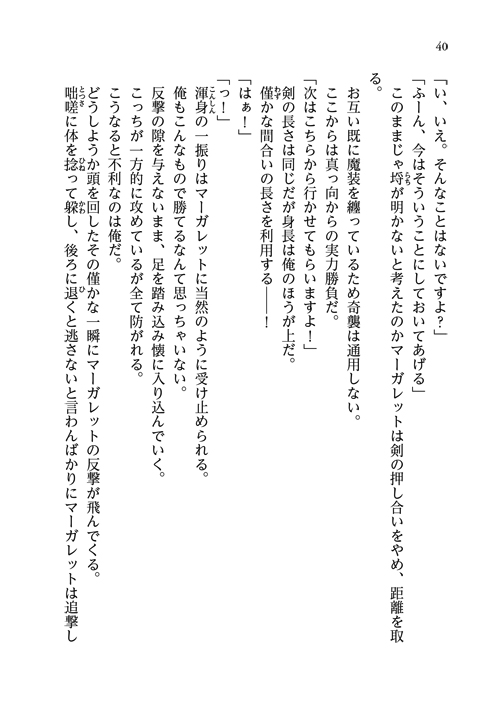 40
「い、いえ。そんなことはないですよ？」
「ふーん、今はそういうことにしておいてあげる」
このままじゃ埒が明かないと考えたのかマーガレットは剣の押し合いをやめ、距離を取
る。
お互い既に魔装を纏っているため奇襲は通用しない。
ここからは真っ向からの実力勝負だ。
「次はこちらから行かせてもらいますよ！」
剣の長さは同じだが身長は俺のほうが上だ。
僅かな間合いの長さを利用する――！
「はぁ！」
「っ！」
渾身の一振りはマーガレットに当然のように受け止められる。
俺もこんなもので勝てるなんて思っちゃいない。
反撃の隙を与えないまま、足を踏み込み懐に入り込んでいく。
こっちが一方的に攻めているが全て防がれる。
こうなると不利なのは俺だ。
どうしようか頭を回したその僅かな一瞬にマーガレットの反撃が飛んでくる。
咄嗟に体を捻って躱し、後ろに退くと逃さないと言わんばかりにマーガレットは追撃し